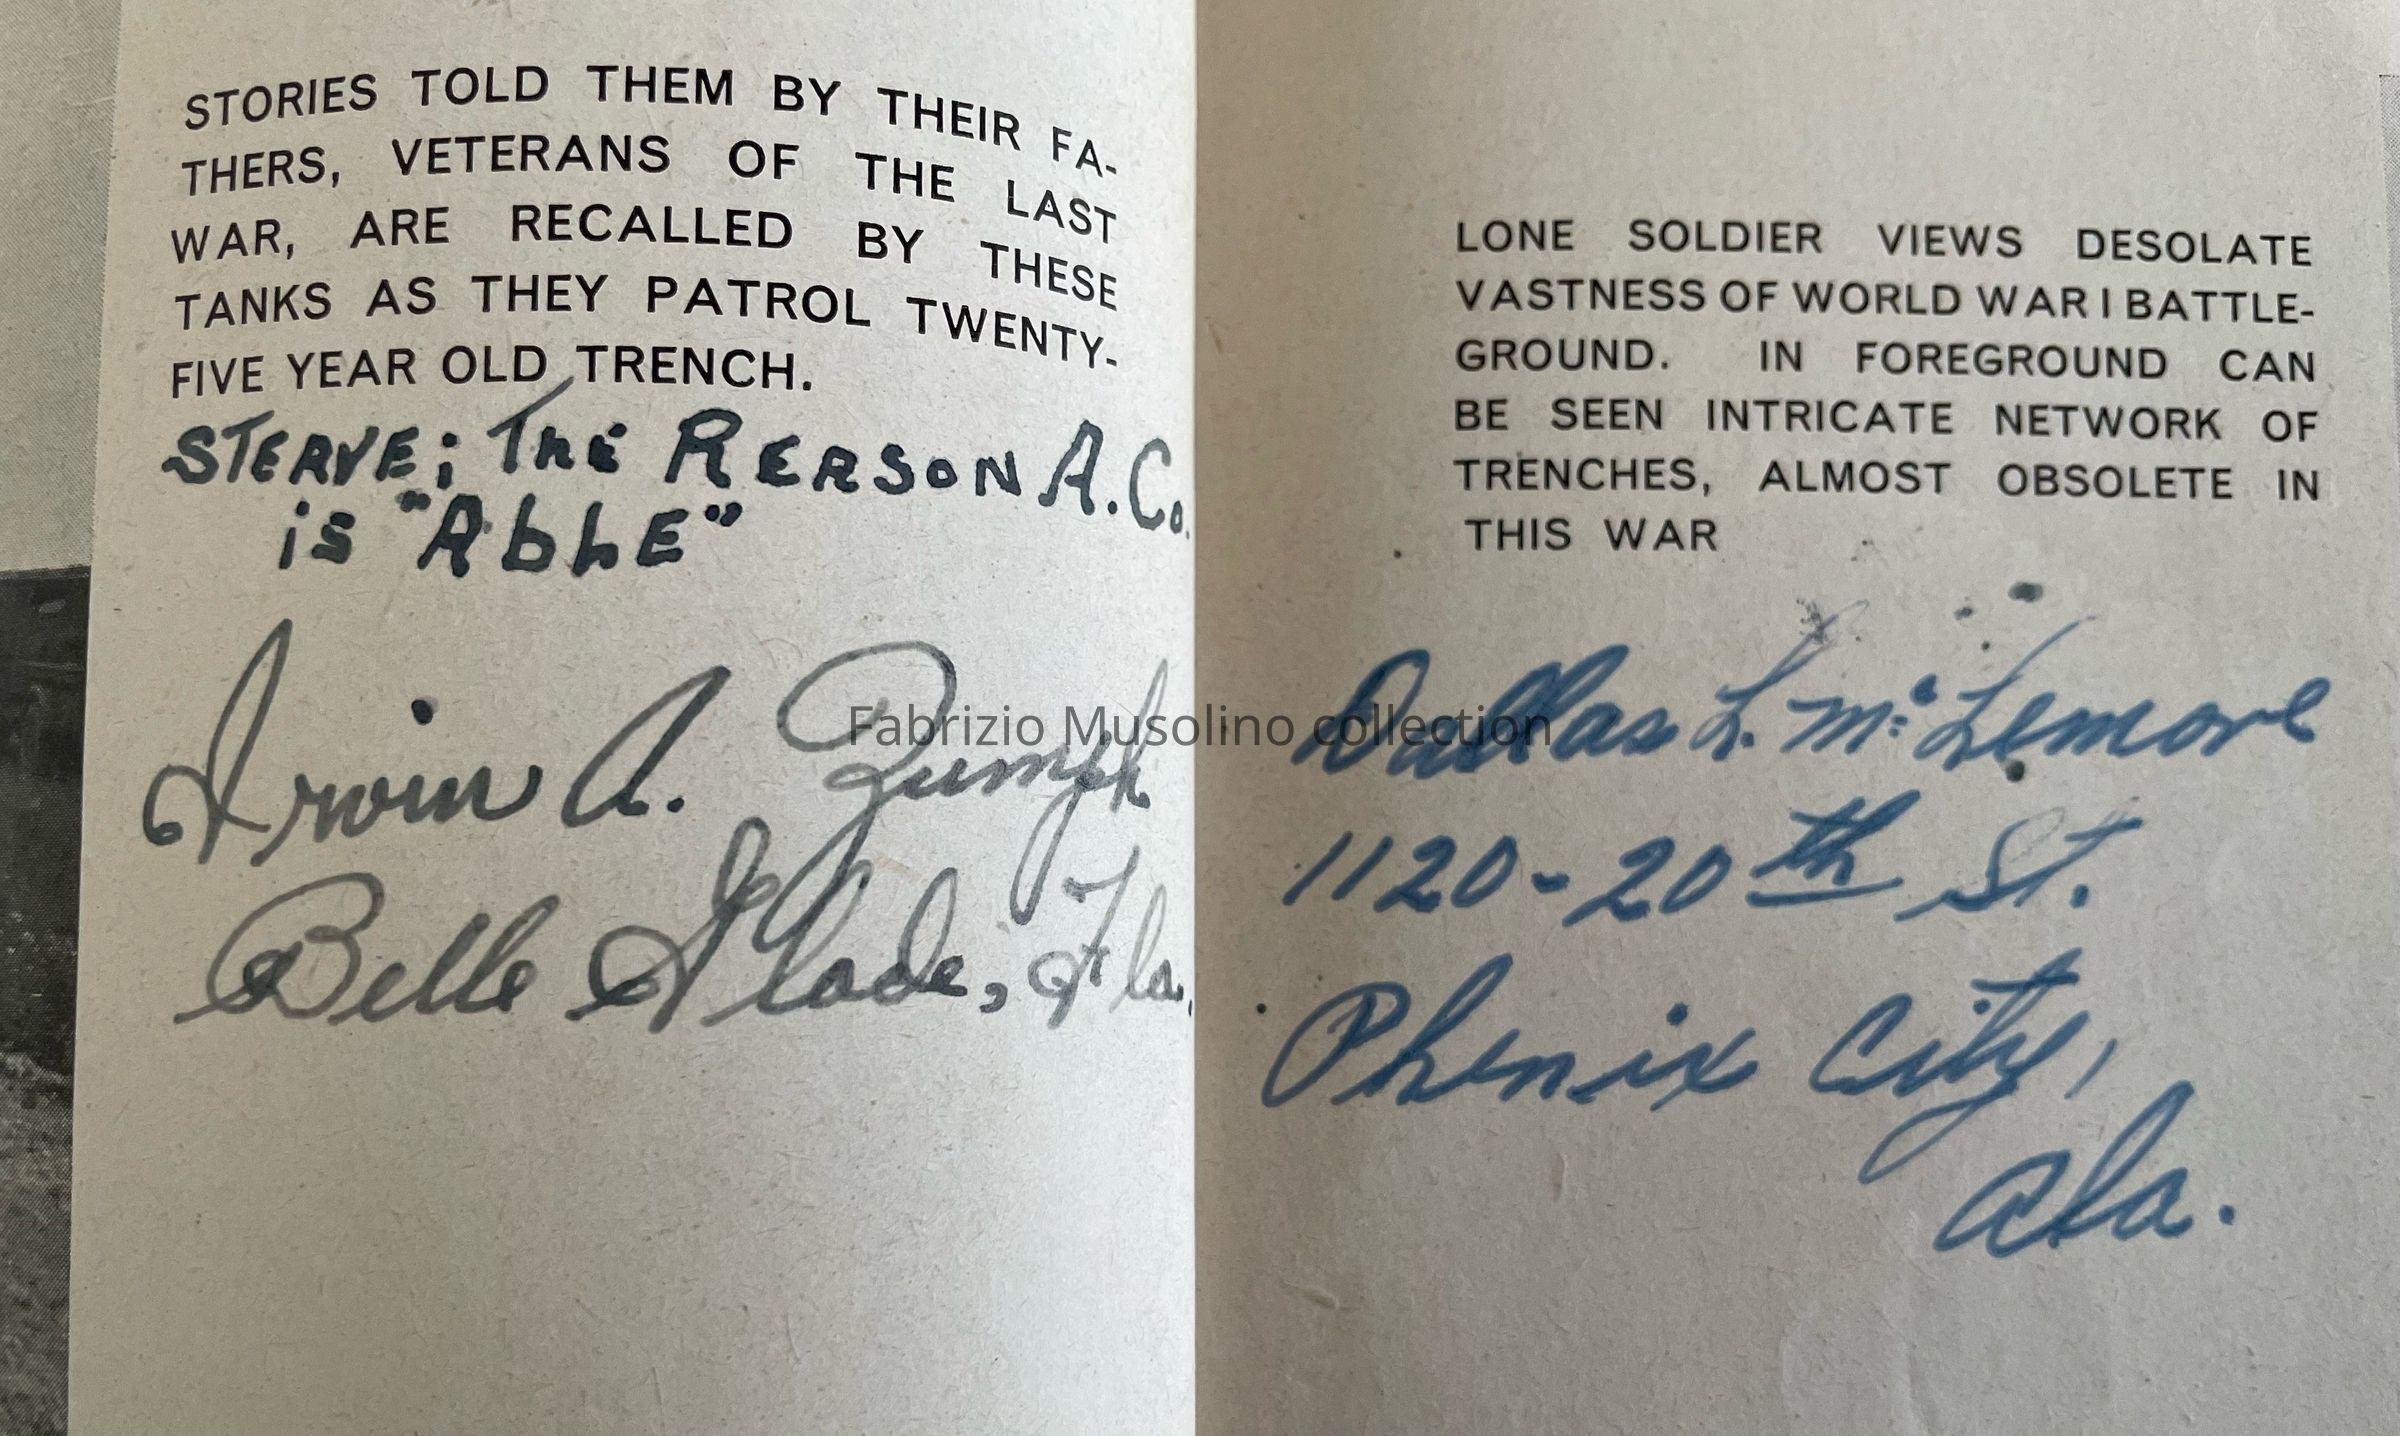 STORIES TOLD THEM BY THEIR FA-
THERS, VETERANS OF THE LAST
WAR, ARE RECALLED BY THESE
TANKS AS THEY PATROL TWENTY-
FIVE YEAR OLD TRENCH.
STERVE; The RERSON A. Co.
is "AbLE"
Irvin A. Zumph
Belle Glade, Fla.
LONE SOLDIER VIEWS DESOLATE
VASTNESS OF WORLD WAR I BATTLE-
GROUND. IN FOREGROUND CAN
BE SEEN INTRICATE NETWORK OF
TRENCHES, ALMOST OBSOLETE IN
THIS WAR
Dallas L. Mc Lemore
1120-20th St.
Phenix City,
Ala.
Fabrizio Musolino collection